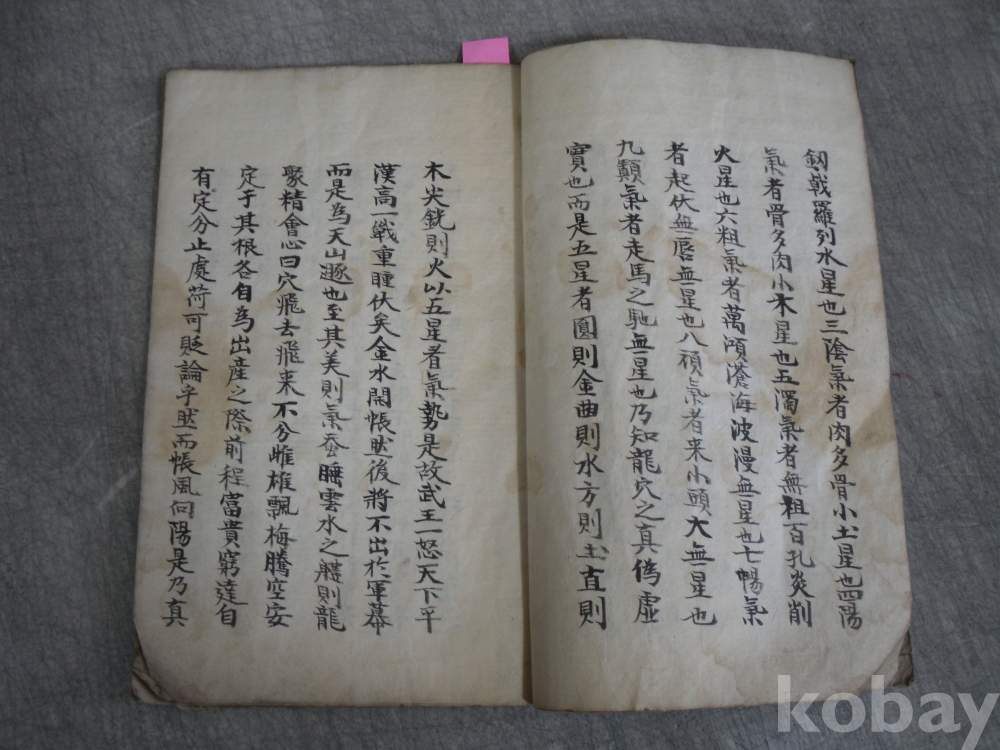 釼戟羅列水星也三陰氣者肉多骨小土星也四陽
氣者骨多肉小木星也五濁氣者無祖百孔炎削
火星也六粗氣者萬頃滄海波漫無星也七暢氣
者起伏無唇無星也八頑氣者来小頭大無星也
九類氣者走馬之馳無星也乃知龍穴之真僞虛
實也而是五星者圓則金曲則水方則土直則
木尖銳則火以五星者氣勢是故武王一怒天下平
漢高一戰重瞳伏矣金水開帳然後將不出於軍幕
而是為天山遯也至其美則氣蚕睡雲水之將則龍
聚精會心曰穴飛去飛来不分雌雄飄梅騰空安
定于其根各自為出産之際前程富貴窮達自
有定分止處荷可貶論乎然而帳風向陽是乃真
kobay